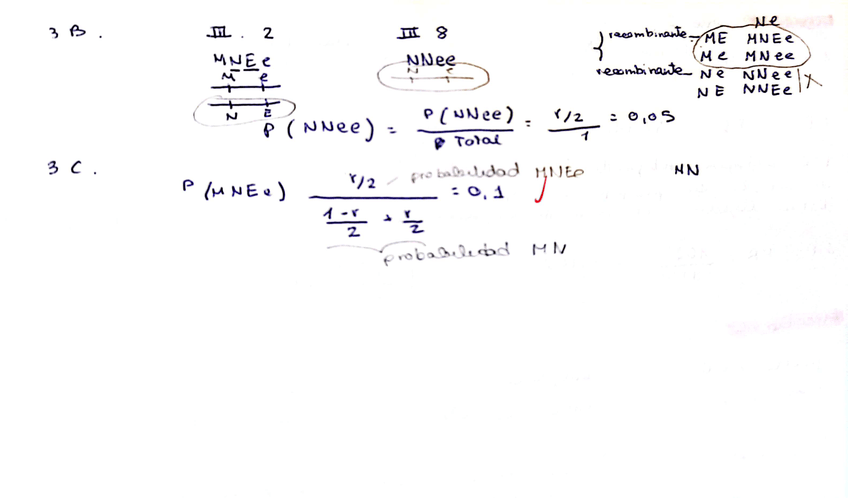 3 B.
III. 2
III 8
MNEe
M e
N E
NNee
N e
Ne
recombinante ME MNEe
Me MNee
recombinante Ne NNee
NE NNEe
P (NNee) = P(NNee) / Total = r/2 / 1 = 0,05
3 C.
P (MNEe) r/2 probabilidad MNEe = 0,1
1-r/2 + r/2
probabilidad MN
MN